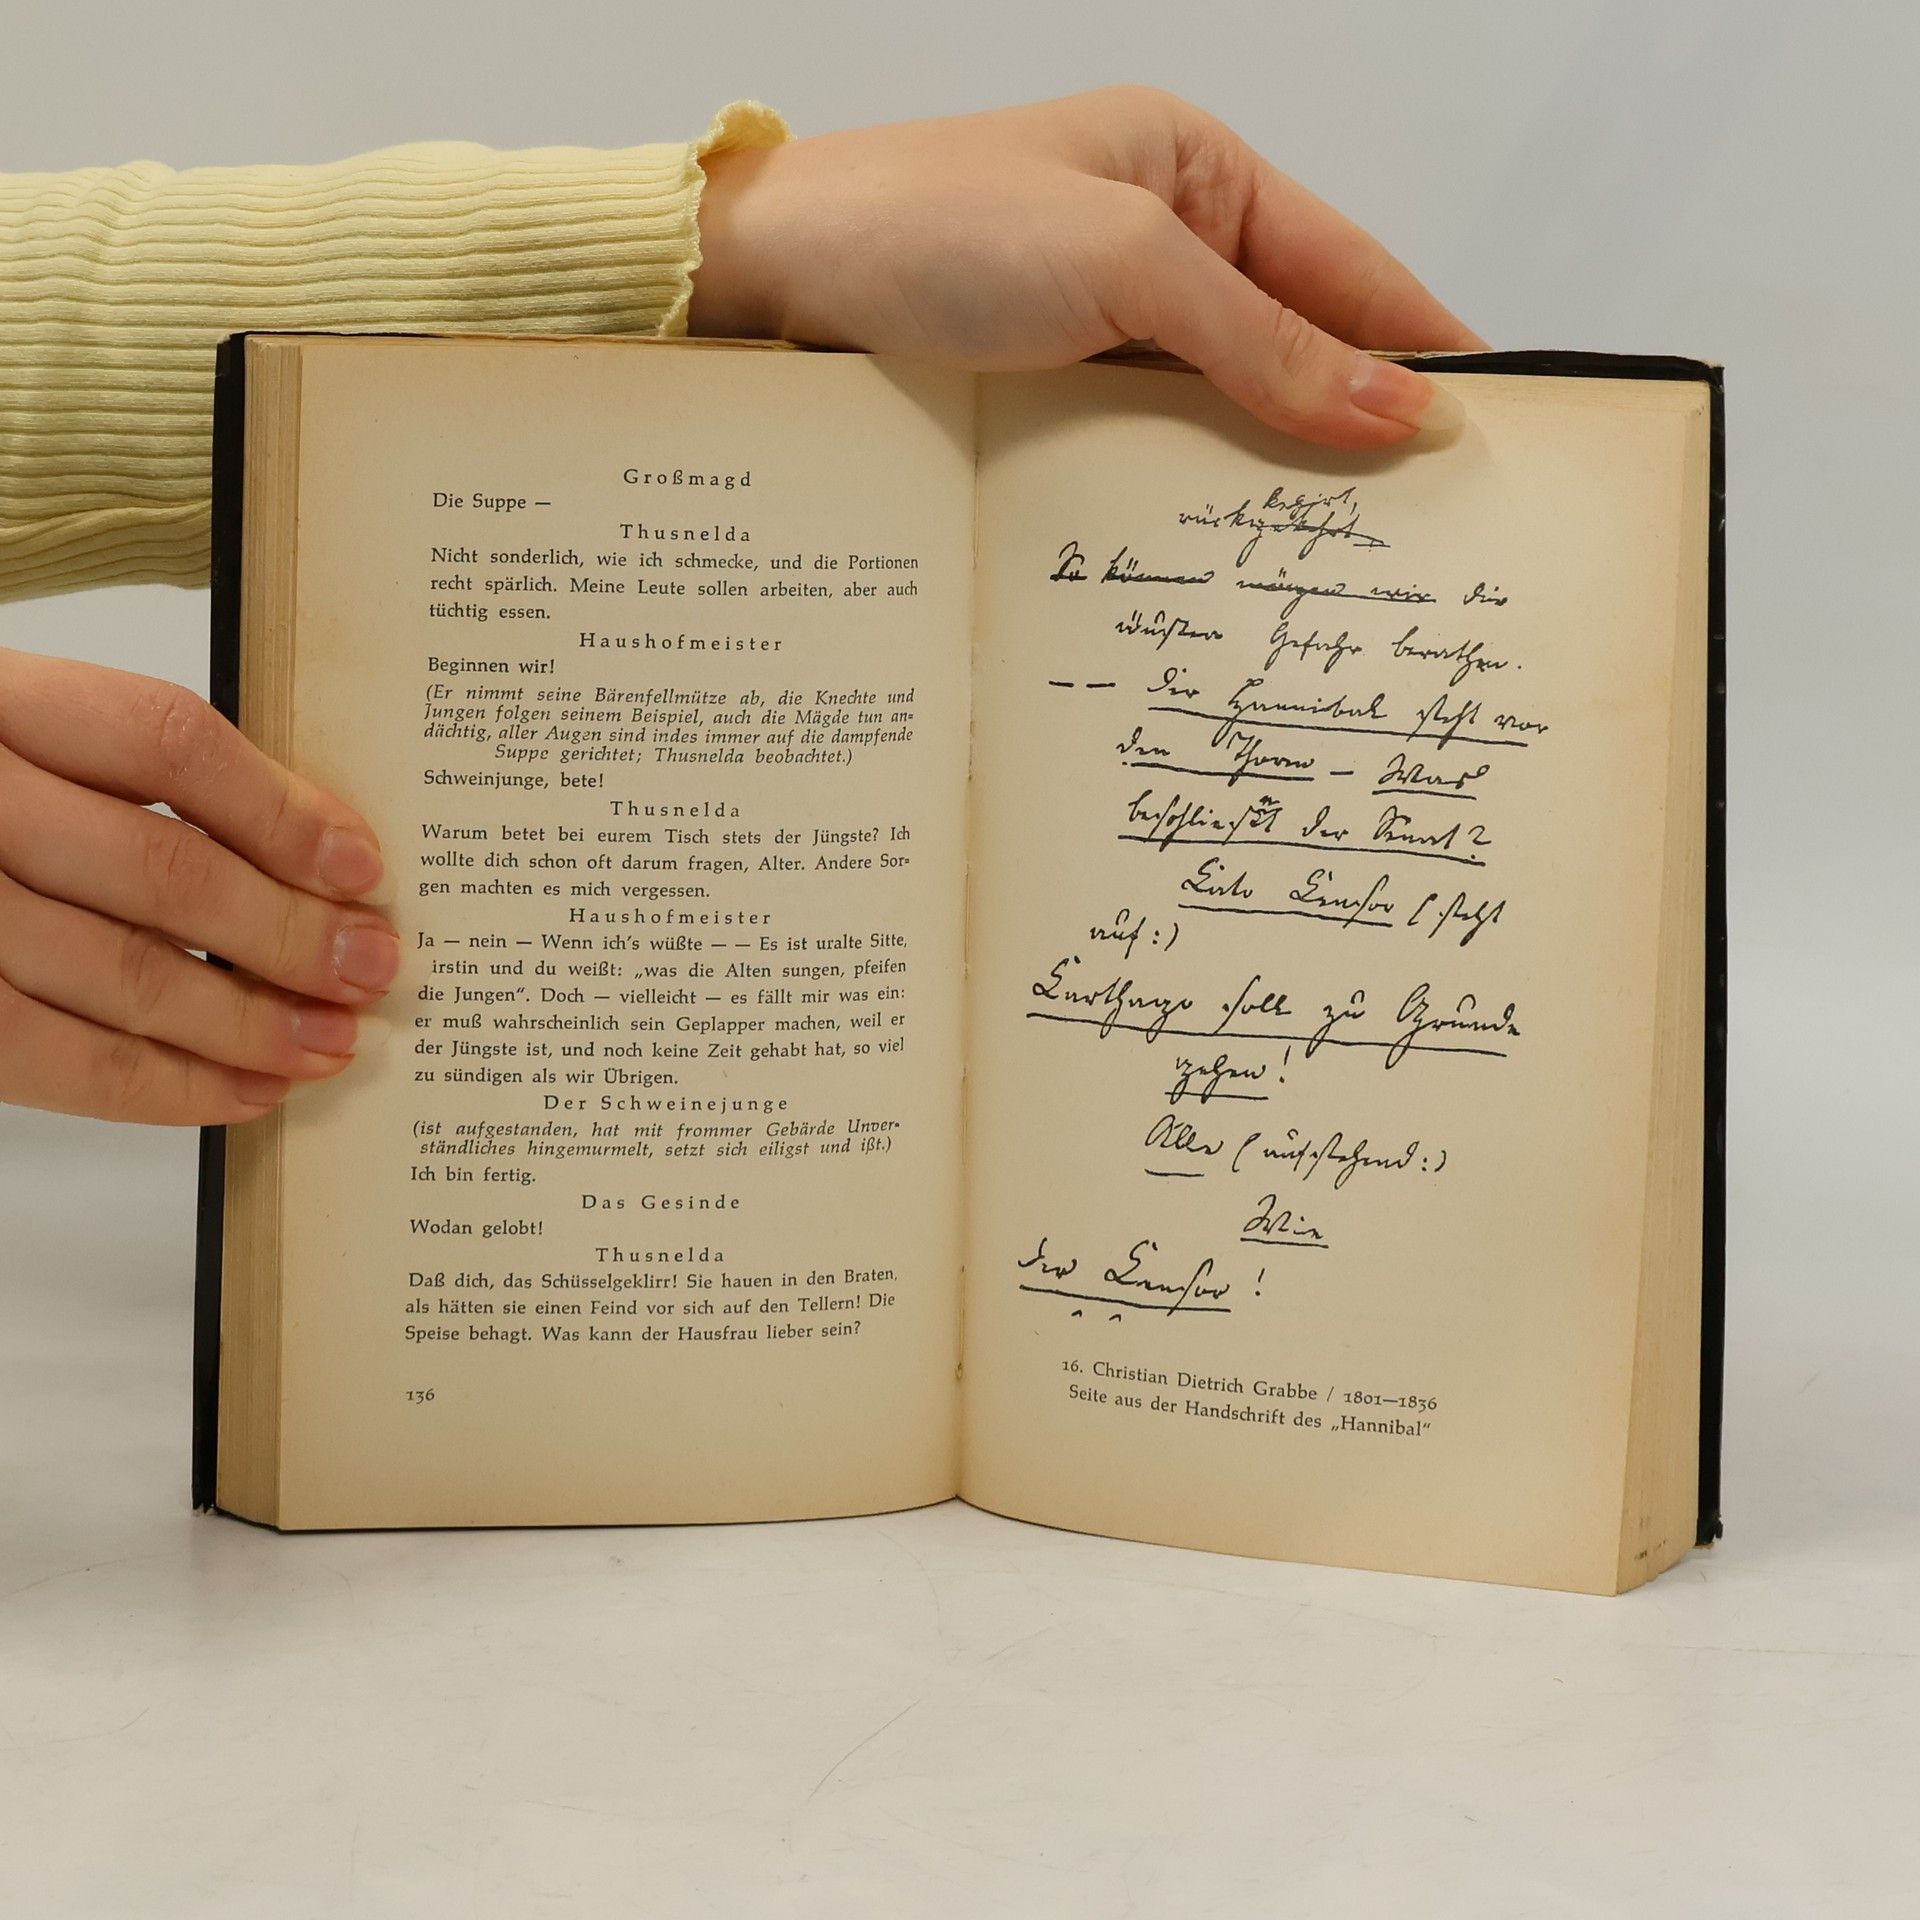 Großmagd
Die Suppe —
Thusnelda
Nicht sonderlich, wie ich schmecke, und die Portionen
recht spärlich. Meine Leute sollen arbeiten, aber auch
tüchtig essen.
Haushofmeister
Beginnen wir!
(Er nimmt seine Bärenfellmütze ab, die Knechte und
Jungen folgen seinem Beispiel, auch die Mägde tun an=
dächtig, aller Augen sind indes immer auf die dampfende
Suppe gerichtet; Thusnelda beobachtet.)
Schweinjunge, bete!
Thusnelda
Warum betet bei eurem Tisch stets der Jüngste? Ich
wollte dich schon oft darum fragen, Alter. Andere Sor=
gen machten es mich vergessen.
Haushofmeister
Ja — nein — Wenn ich's wüßte — — Es ist uralte Sitte,
irstin und du weißt: „was die Alten sungen, pfeifen
die Jungen“. Doch — vielleicht — es fällt mir was ein:
er muß wahrscheinlich sein Geplapper machen, weil er
der Jüngste ist, und noch keine Zeit gehabt hat, so viel
zu sündigen als wir Übrigen.
Der Schweinejunge
(ist aufgestanden, hat mit frommer Gebärde Unver=
ständliches hingemurmelt, setzt sich eiligst und ißt.)
Ich bin fertig.
Das Gesinde
Wodan gelobt!
Thusnelda
Daß dich, das Schüsselgeklirr! Sie hauen in den Braten,
als hätten sie einen Feind vor sich auf den Tellern! Die
Speise behagt. Was kann der Hausfrau lieber sein?
136
So können mögen wir die
Gefahr berathen.
— — Der Hannibal steht vor
den Thoren — Was
beschließt der Senat?
Cato Censor (steht
auf:)
Carthago soll zu Grunde
gehen!
Alle (aufstehend:)
Wie
der Censor!
16. Christian Dietrich Grabbe / 1801—1836
Seite aus der Handschrift des „Hannibal“